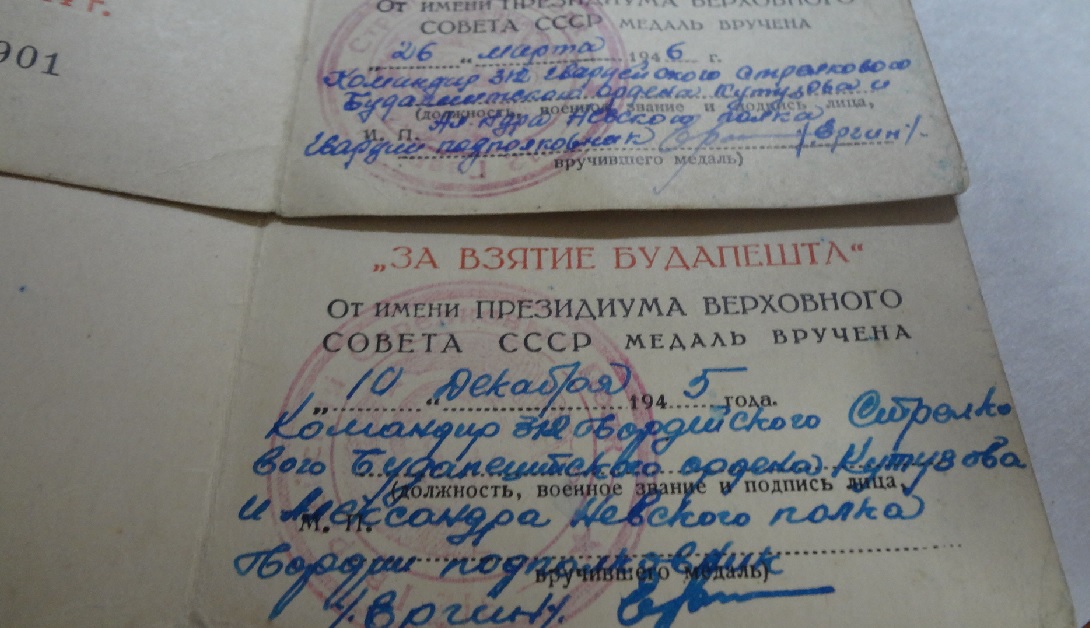 901
От имени ПРЕЗИДИУМА ВЕРХОВНОГО
СОВЕТА СССР МЕДАЛЬ ВРУЧЕНА
„26" марта 1946 г.
Командир 312 Гвардейского стрелкового
Будапештского ордена Кутузова и
(должность, военное звание и подпись лица,
Ал-ндра Невского полка
М. П.
Гвардии подполковник /Ергин/.
вручившего медаль)
„ЗА ВЗЯТИЕ БУДАПЕШТА“
От имени ПРЕЗИДИУМА ВЕРХОВНОГО
СОВЕТА СССР МЕДАЛЬ ВРУЧЕНА
„10“ Декабря 1945 года.
Командир 312 Гвардейского Стрелко
вого Будапештского ордена Кутузова
(должность, военное звание и подпись лица,
и Александра Невского полка
М. П.
Гвардии подполковник
вручившего медаль)
/Ергин/.